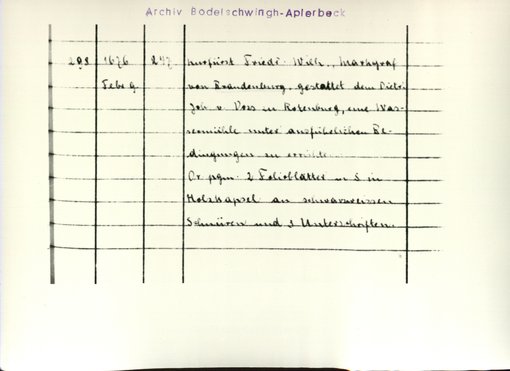 Archiv Bodelschwingh-Aplerbeck
298 1676 247 Kurfürst Friedr. Wilh., Markgraf
Febr 9. von Brandenburg, gestattet dem Dietr.
Joh. v. Voss zu Rotenburg, eine Was-
sermühle unter ausführlichen Be-
dingungen zu errichten
Or. pgm. 2 Folioblätter m S in
Holzkapsel an schwarzweissen
Schnüren und 3 Unterschriften.